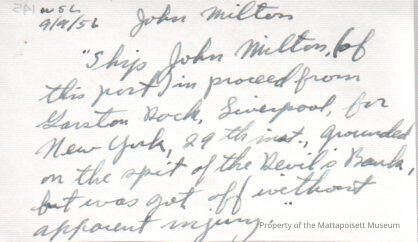 WSL
9/8/56
John Milton
"Ship John Milton, (of
this port) in proceed from
Garston Dock, Liverpool, for
New York, 29th inst., grounded
on the spit of the Devil's Bank,
but was got off without
apparent injury."
Property of the Mattapoisett Museum